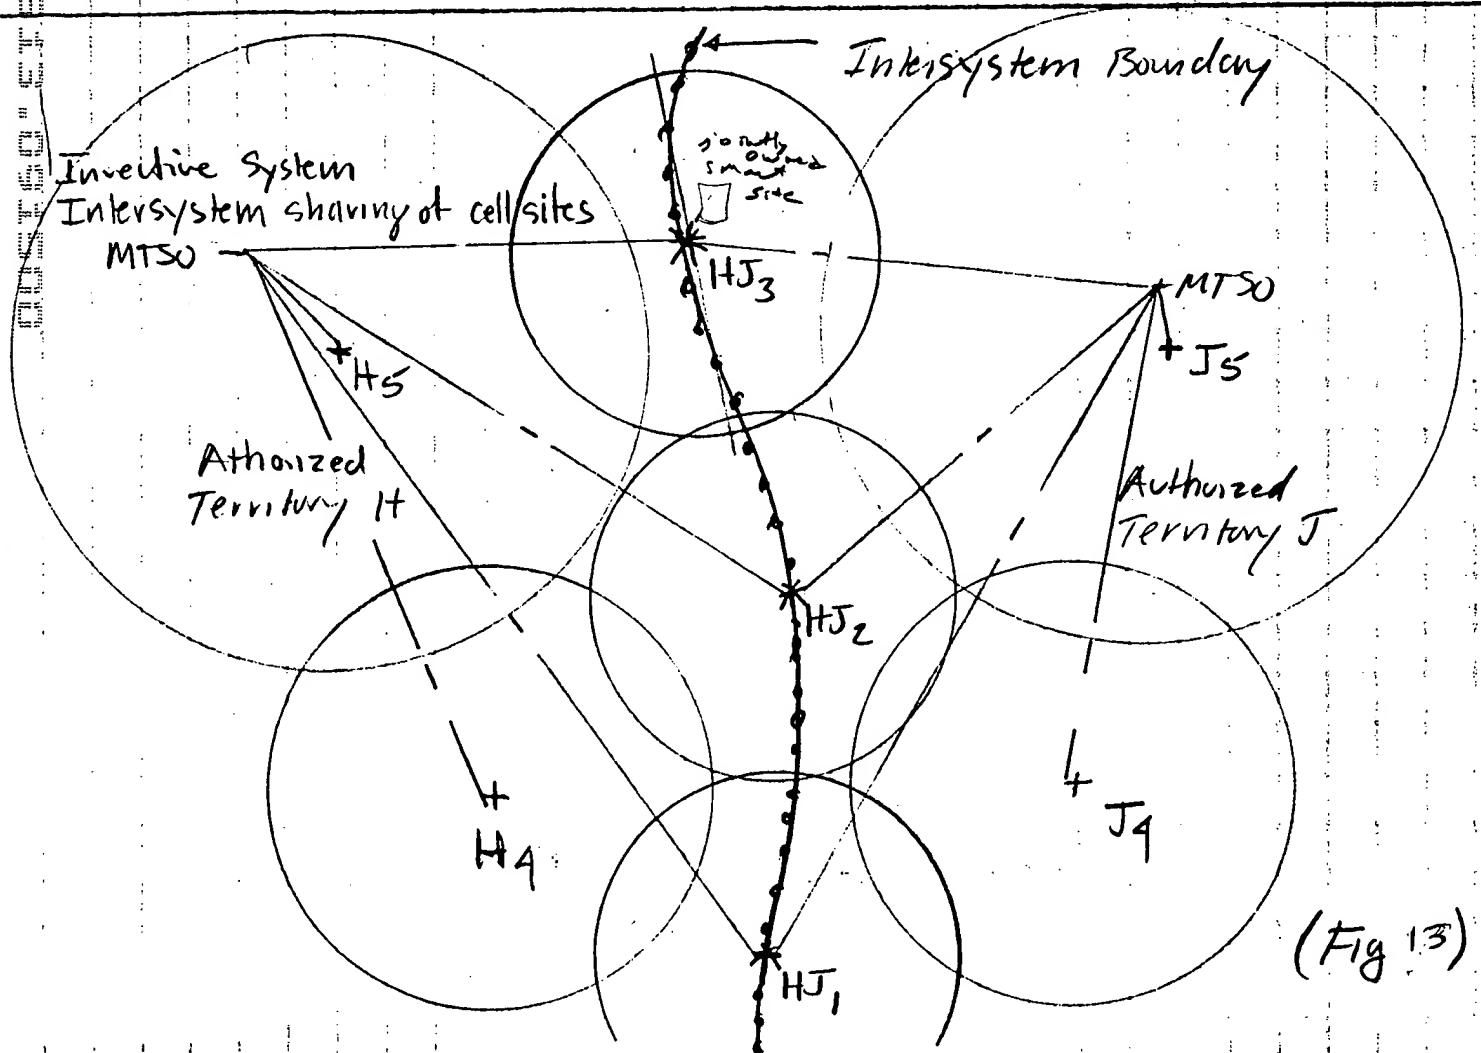 Intersystem Boundary
jointly
owned
smart
site
Invective System
Intersystem sharing of cell sites
MTSO
HJ3
MTSO
H5
J5
Athorized
Territory H
Authorized
Territory J
HJ2
H4
J4
HJ1
(Fig 13)